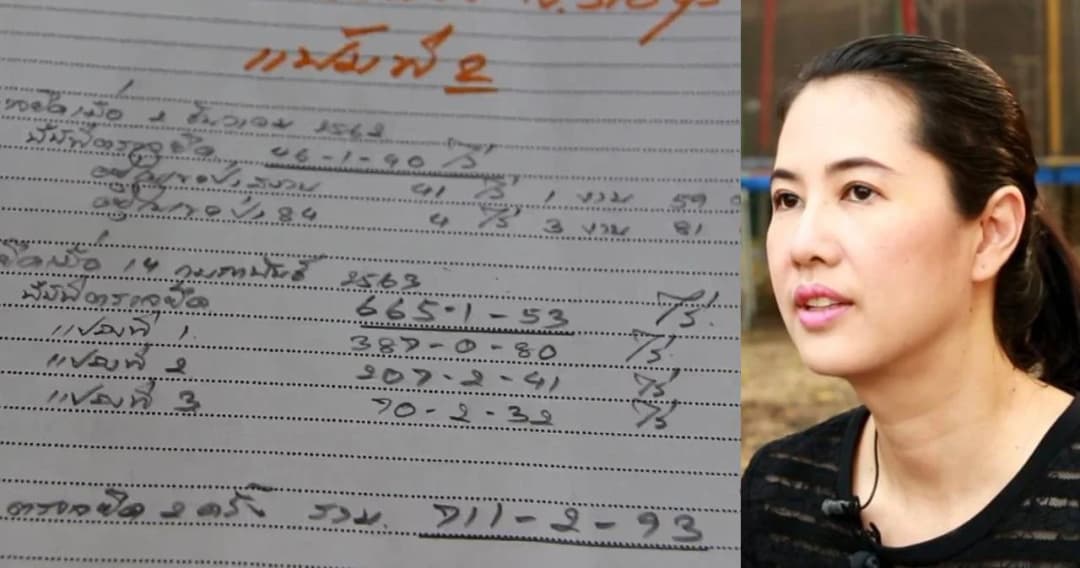 แฟ้มที่ 2
ยึดเมื่อ 2 ธันวาคม 2562
พื้นที่ตรวจยึด 46-1-40 ไร่
อยู่ในเขตป่าสงวน 41 ไร่ 1 งาน 59
อยู่ในเขตป่า 84 4 ไร่ 3 งาน 81
ยึดเมื่อ 14 กุมภาพันธ์ 2563
พื้นที่ตรวจยึด 665-1-53 ไร่.
แปลงที่ 1. 387-0-80 ไร่
แปลงที่ 2 207-2-41 ไร่
แปลงที่ 3 70-2-32 ไร่
ตรวจยึด 2 ครั้ง รวม. 711-2-93